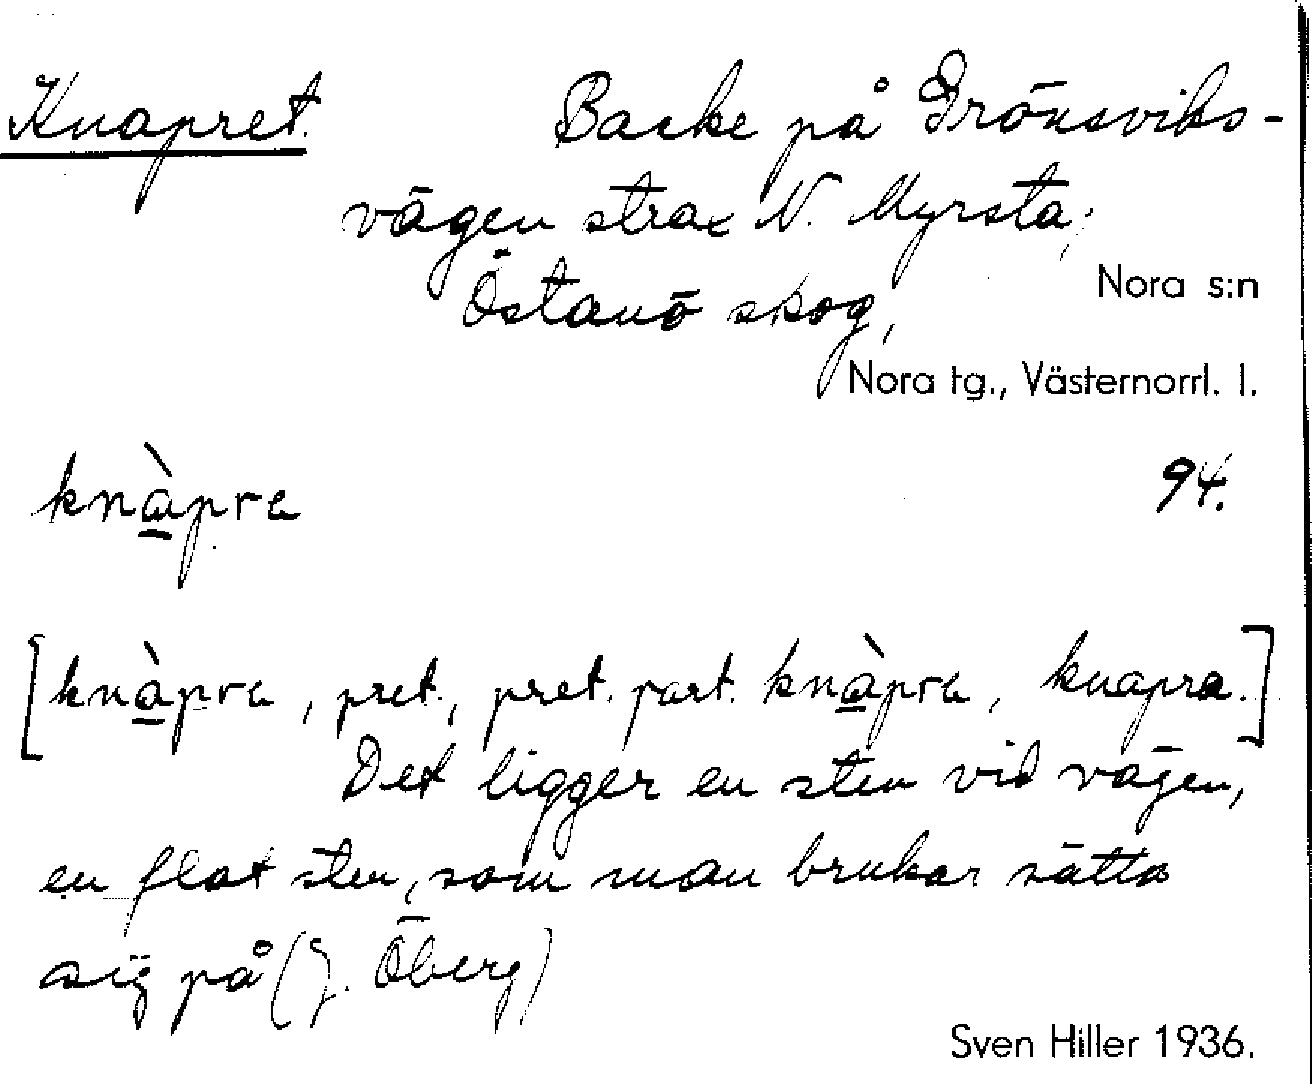 Knapret. Backe på Grönsviks-
vägen strax N. Myrsta,
Östanö skog,
Nora s:n
Nora tg., Västernorrl. l.
knàpra 94.
[knàpra, pret., pret. part. knàpra, knapra.]
Det ligger en sten vid vägen,
en flat sten, som man brukar sätta
sig på (J. Öberg)
Sven Hiller 1936.